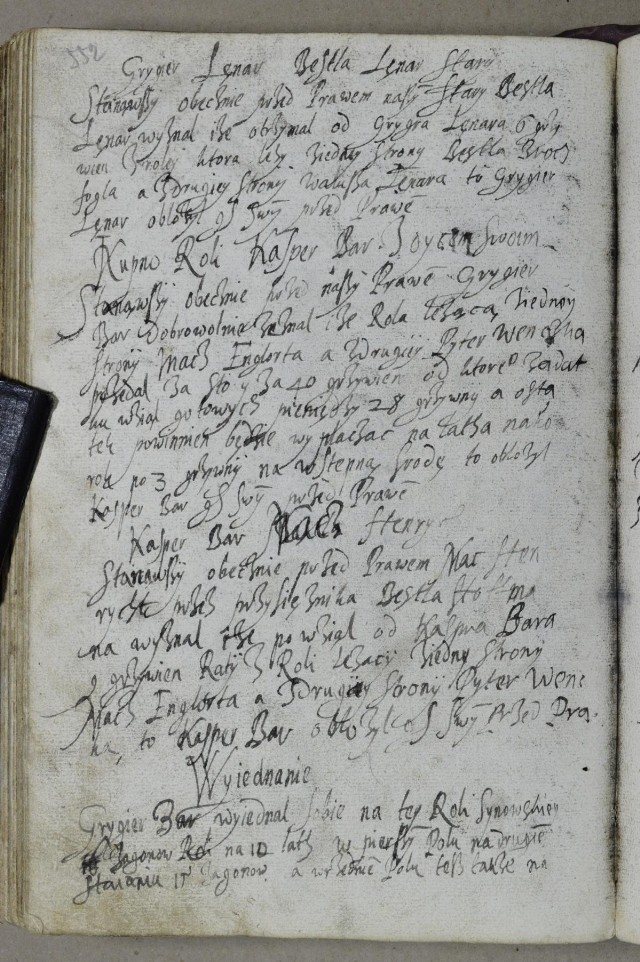 552
Grygier Lenar Bestla Lenar Stary
Stanąwszy obecznie przed Prawem nasz Stary Bestla
Lenar wyznal ize otrzymal od Grygra Lenara 6 grzy
wien z roley ktora lezy ziedney strony Bestla
fogla a zdrugiey strony walussa Lenara to Grygier
Lenar oblozyl gß swy przed Prawē
Kupno Roli Kasper Bar z oycem swoim
Stanąwszy obecznie przed naszy Prawē Grygier
Bar Dobrowolnie zeznal ize Rola lezącą ziedney
strony Mach Englerta a zdrugiey Pyter Wenczla
przedal za sto y za 40 grzywien od ktore° zadat
ku wzial gotowych pieniędzy 28 grzywny a osta
tek powinnien będzie wyplaczac na latha na
rok po 3 grzywny na wstempną srodę to oblozyl
Kasper Bar gß swy przed Prawē
Kasper Bar Mach Henryg
Stanąwszy obecznie przed Prawem Mac Hen
rycht przez przysięznika Bestla Hoffma
na wyznal ize powzial od Kaspra Bara
9 grzywien Raty z Roli lezacy ziedny strony
Mach Englerta a zdrugiey strony Pyter Wenc
la, to Kasper Bar oblozyl gß swy Przed Pra
Wyiednanie
Grygier Bar wyiednal sobie na tey Roli Synowskiey
Zagonow Roli na 10 lath w pierszy Polu na drugie
staianiu 15 Zagonow a wrzednie Polu tesz takze na